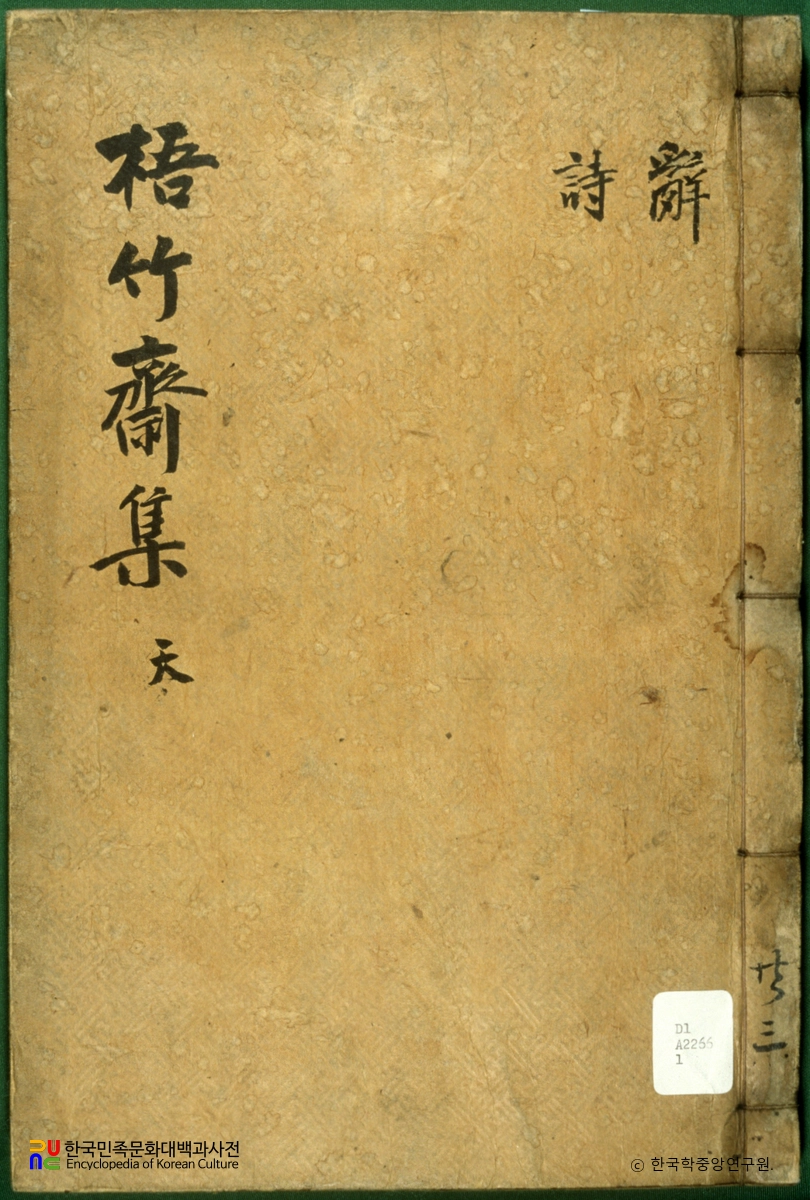 辭
詩
梧竹齋集 天
共三
D1
A2266
1
한국민족문화대백과사전
Encyclopedia of Korean Culture
© 한국학중앙연구원.